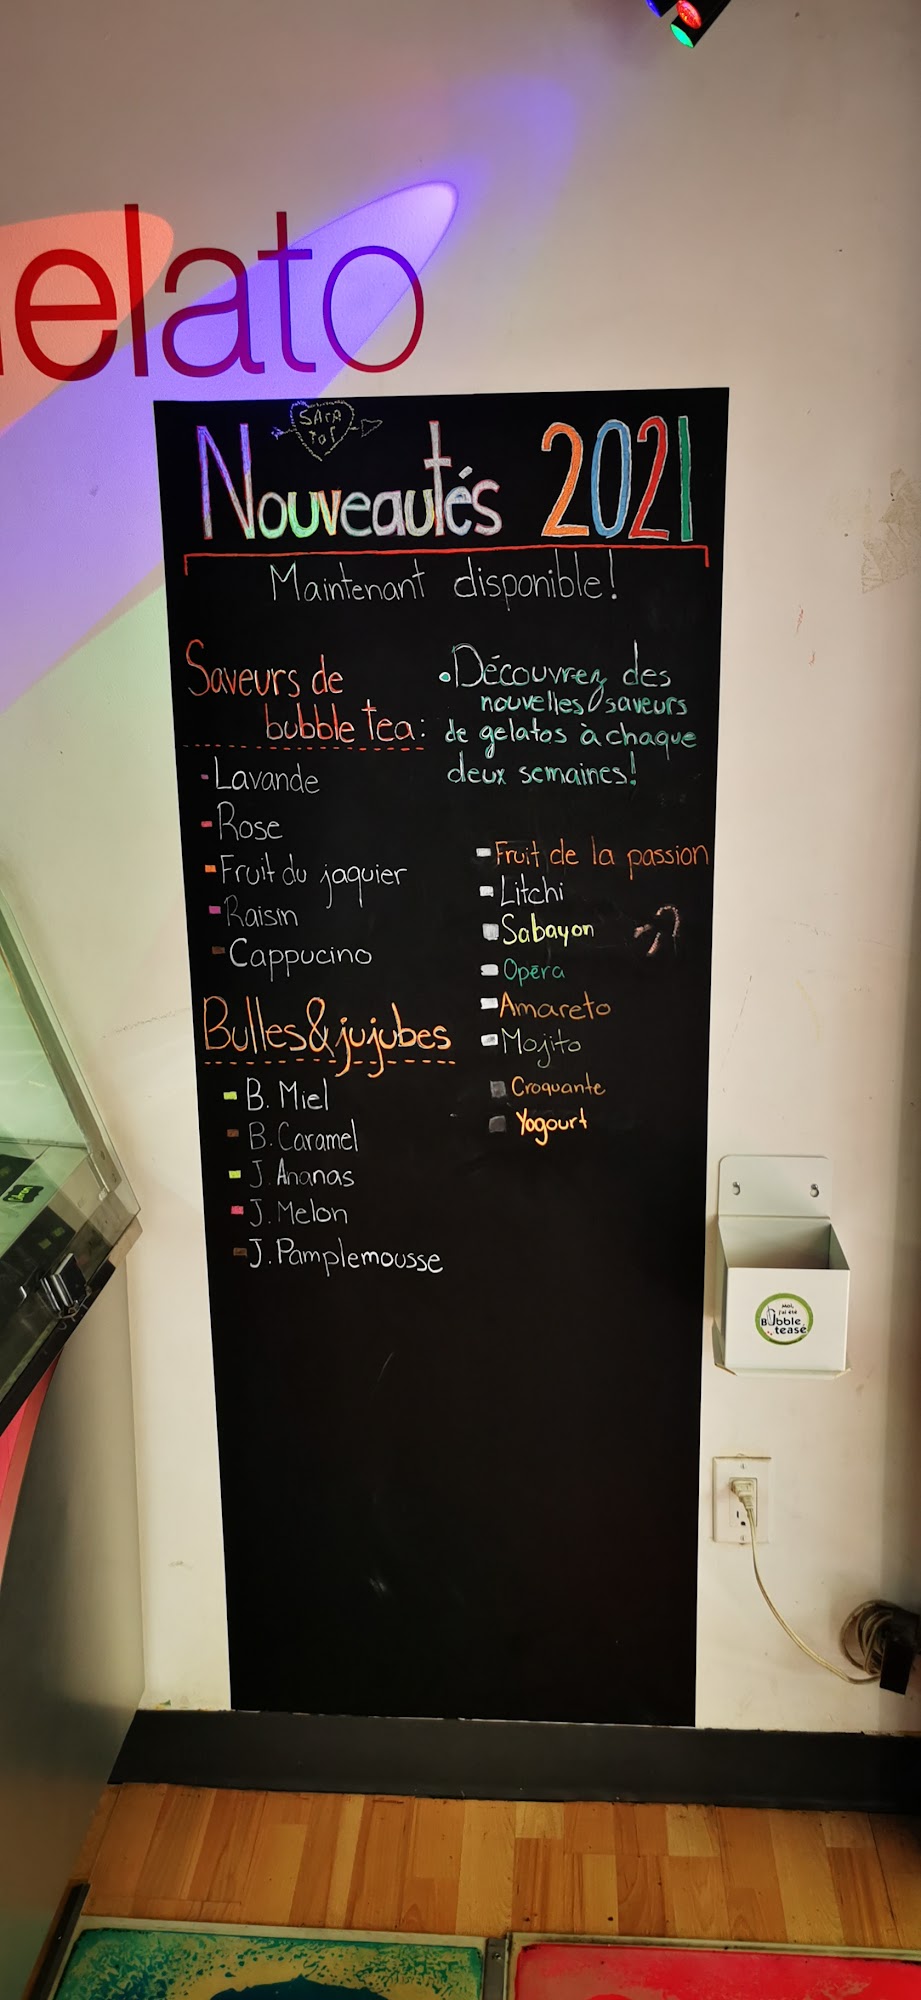 elato
SArA
Nouveautés 2021
Maintenant disponible!
Saveurs de
bubble tea:
-Lavande
-Rose
-Fruit du jaquier
-Raisin
-Cappucino
Bulles&jujubes
-B. Miel
-B. Caramel
-J. Ananas
-J. Melon
-J. Pamplemousse
•Découvrez des
nouvelles saveurs
de gelatos à chaque
deux semaines!
-Fruit de la passion
-Litchi
-Sabayon
-Opéra
-Amareto
-Mojito
-Croquante
-Yogourt
Moi,
j'ai été
Bubble
teasé